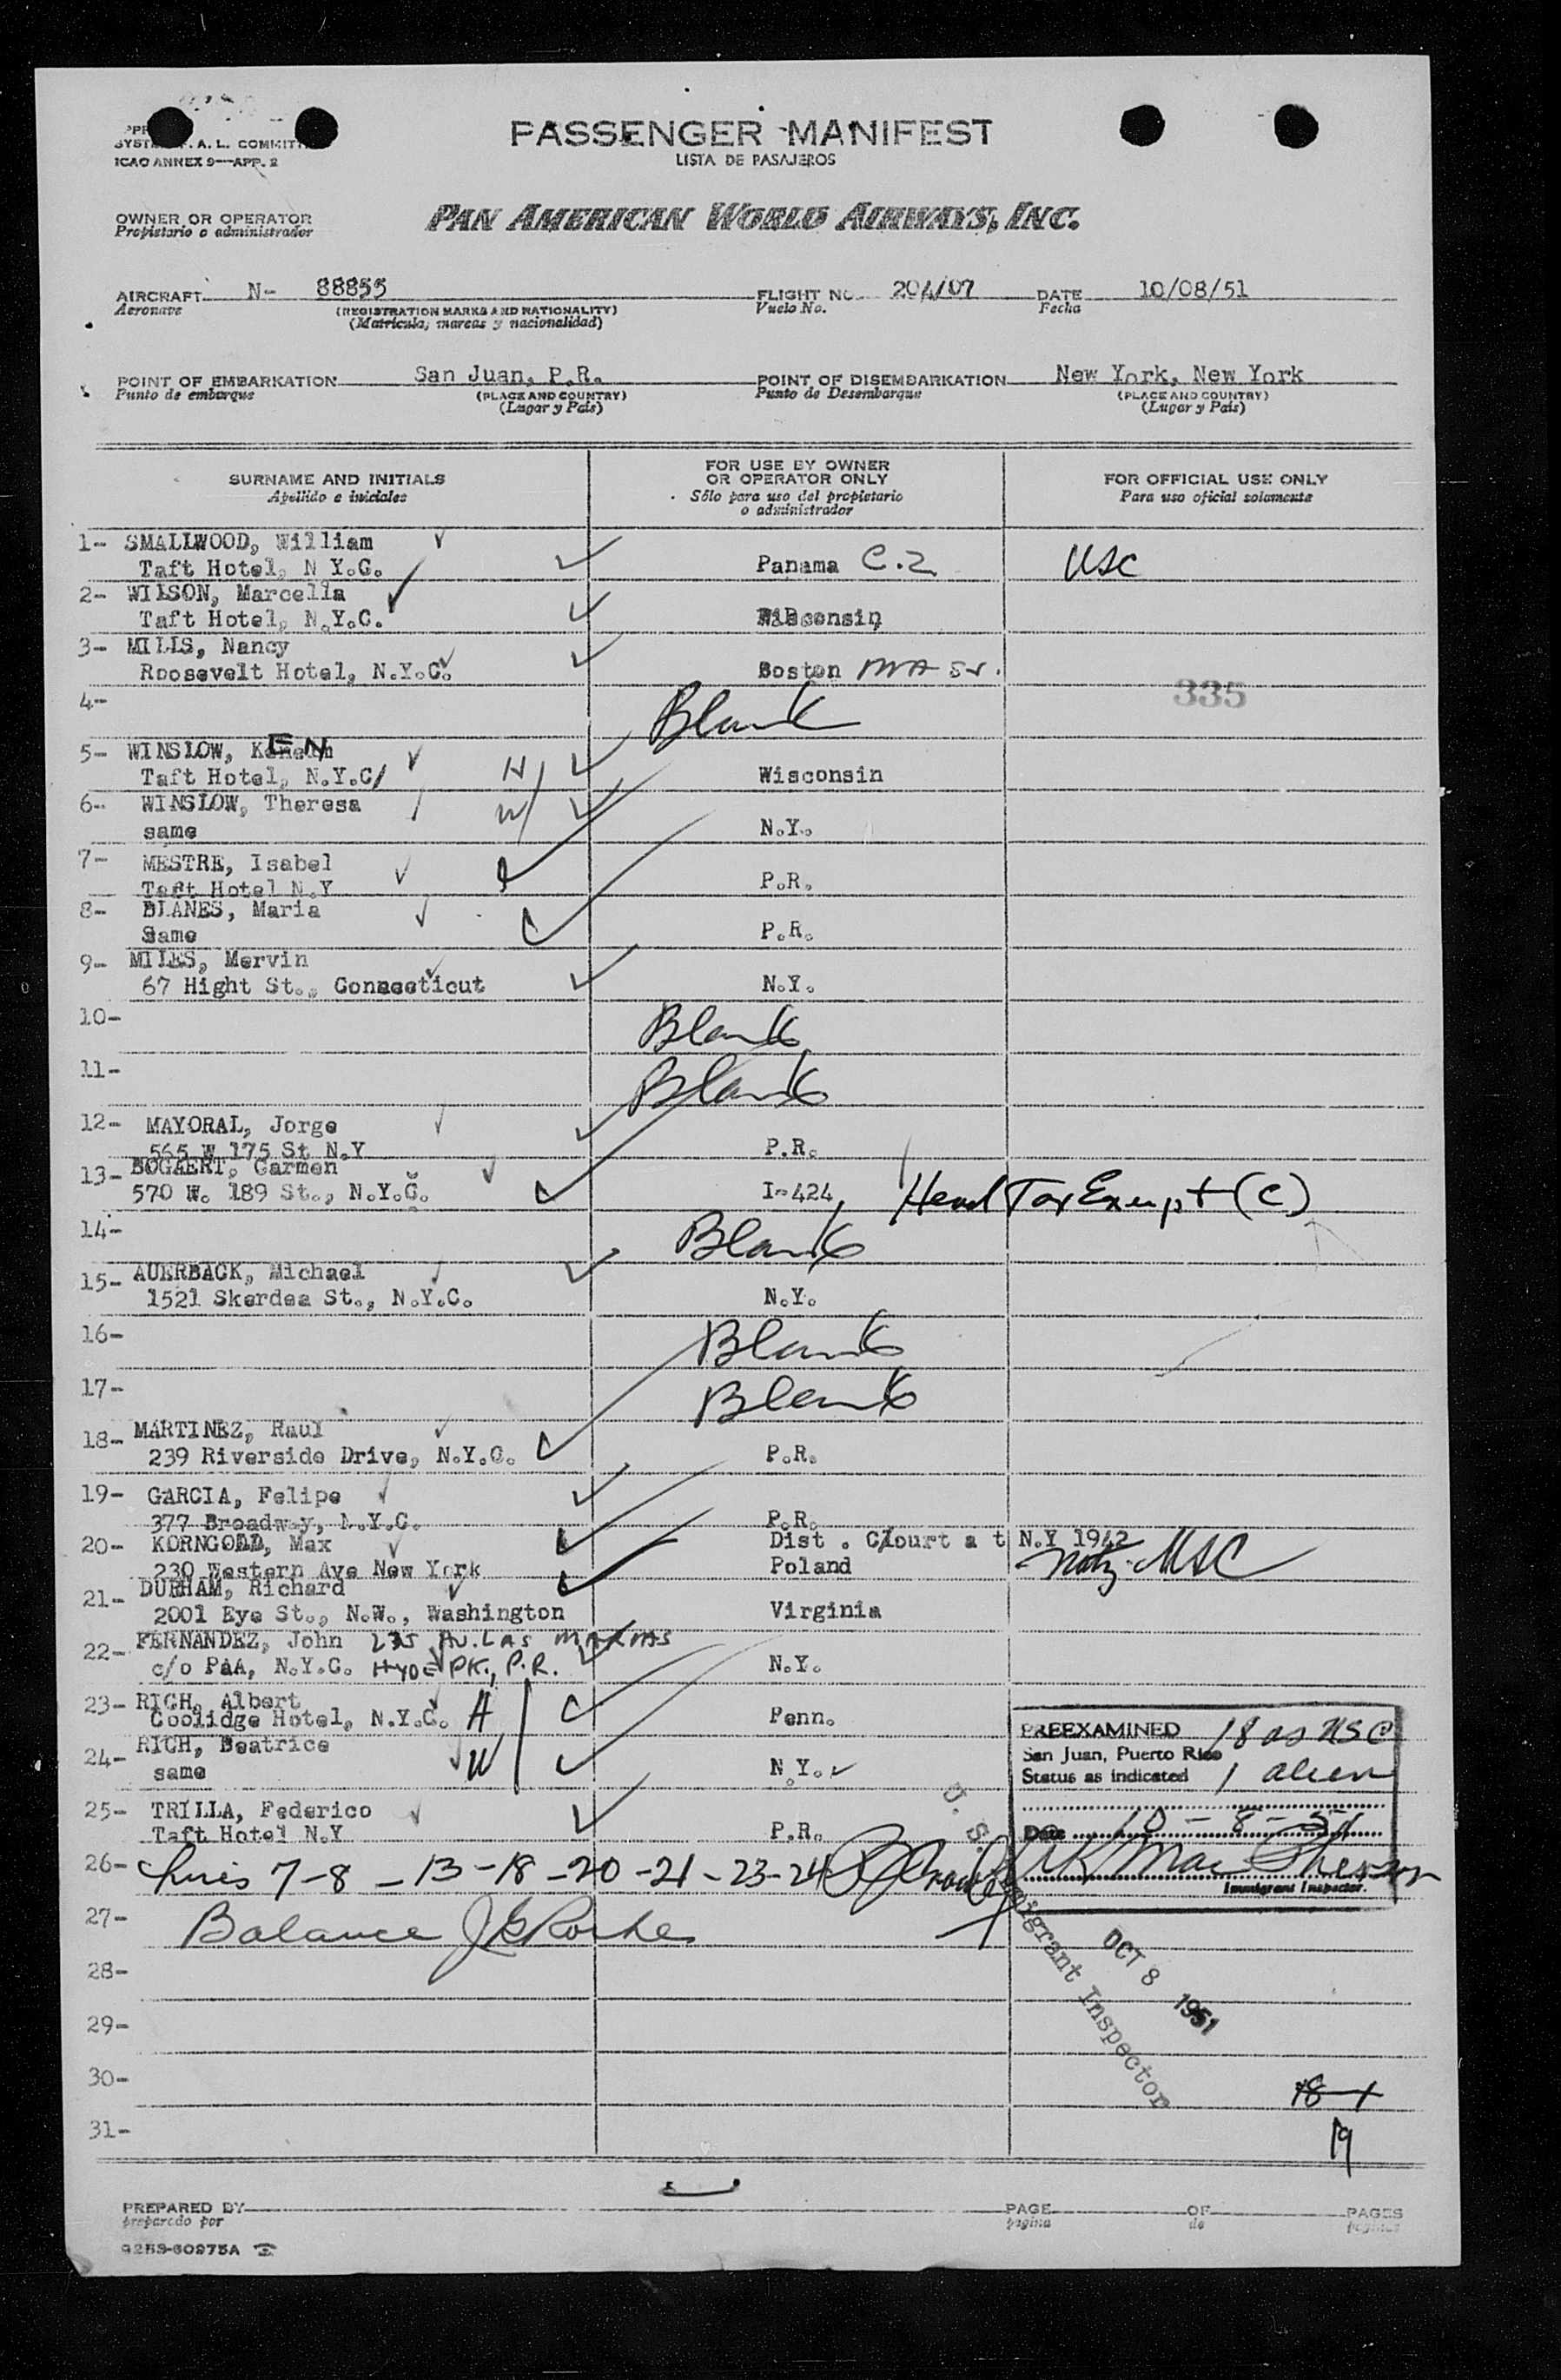 SYST F. A. L. COMMITT
ICAO ANNEX 9—APP. 2
PASSENGER MANIFEST
LISTA DE PASAJEROS
OWNER OR OPERATOR
Propietario o administrador
PAN AMERICAN WORLD AIRWAYS, INC.
AIRCRAFT N- 88855 FLIGHT NO. 204/07 DATE 10/08/51
Aeronave (REGISTRATION MARKS AND NATIONALITY) Vuelo No. Fecha
(Matricula, marcas y nacionalidad)
POINT OF EMBARKATION San Juan, P.R. POINT OF DISEMBARKATION New York, New York
Punto de embarque (PLACE AND COUNTRY) Punto de Desembarque (PLACE AND COUNTRY)
(Lugar y País) (Lugar y País)
SURNAME AND INITIALS FOR USE BY OWNER OR OPERATOR ONLY FOR OFFICIAL USE ONLY
Apellido e iniciales Sólo para uso del propietario o administrador Para uso oficial solamente
1- SMALLWOOD, William
Taft Hotel, N Y.C. Panama C.Z. USC
2- WILSON, Marcella
Taft Hotel, N.Y.C. Wisconsin
3- MILLS, Nancy
Roosevelt Hotel, N.Y.C. Boston MASS.
335
4- Blank
5- WINSLOW, EN
Taft Hotel, N.Y.C/ H Wisconsin
6- WINSLOW, Theresa W
same N.Y.
7- MESTRE, Isabel
Taft Hotel N.Y P.R.
8- BLANES, Maria
Same P.R.
9- MILES, Mervin
67 Hight St., Connecticut N.Y.
10- Blank
11- Blank
12- MAYORAL, Jorge
565 W 175 St N.Y P.R.
13- BOGAERT, Carmen
570 W. 189 St., N.Y.C. I-424, Head Tax Exempt (C)
14- Blank
15- AUERBACK, Michael
1521 Skerdea St., N.Y.C. N.Y.
16- Blank
17- Blank
18- MARTINEZ, Raul
239 Riverside Drive, N.Y.C. P.R.
19- GARCIA, Felipe
377 Broadway, N.Y.C. P.R.
20- KORNGOLD, Max Dist . C/ourt a t N.Y 1942
230 Western Ave New York Poland Natz. USC
21- DURHAM, Richard
2001 Eye St., N.W., Washington Virginia
22- FERNANDEZ, John 235 AV. LAS MARIAS
c/o PAA, N.Y.C. HYDE PK., P.R. N.Y.
23- RICH, Albert
Coolidge Hotel, N.Y.C. H Penn.
24- RICH, Beatrice
same W N.Y.
PREEXAMINED 18 as USC
San Juan, Puerto Rico
Status as indicated 1 alien
Date 10-8-51
Immigrant Inspector.
25- TRILLA, Federico
Taft Hotel N.Y P.R.
26- 7-8 - 13-18-20-21-23-24
27- Balance
U. S. Immigrant Inspector
OCT 8 1951
28-
29-
30- 18-1
31- 19
PREPARED BY PAGE OF PAGES
preparado por página de páginas
9253-60975A